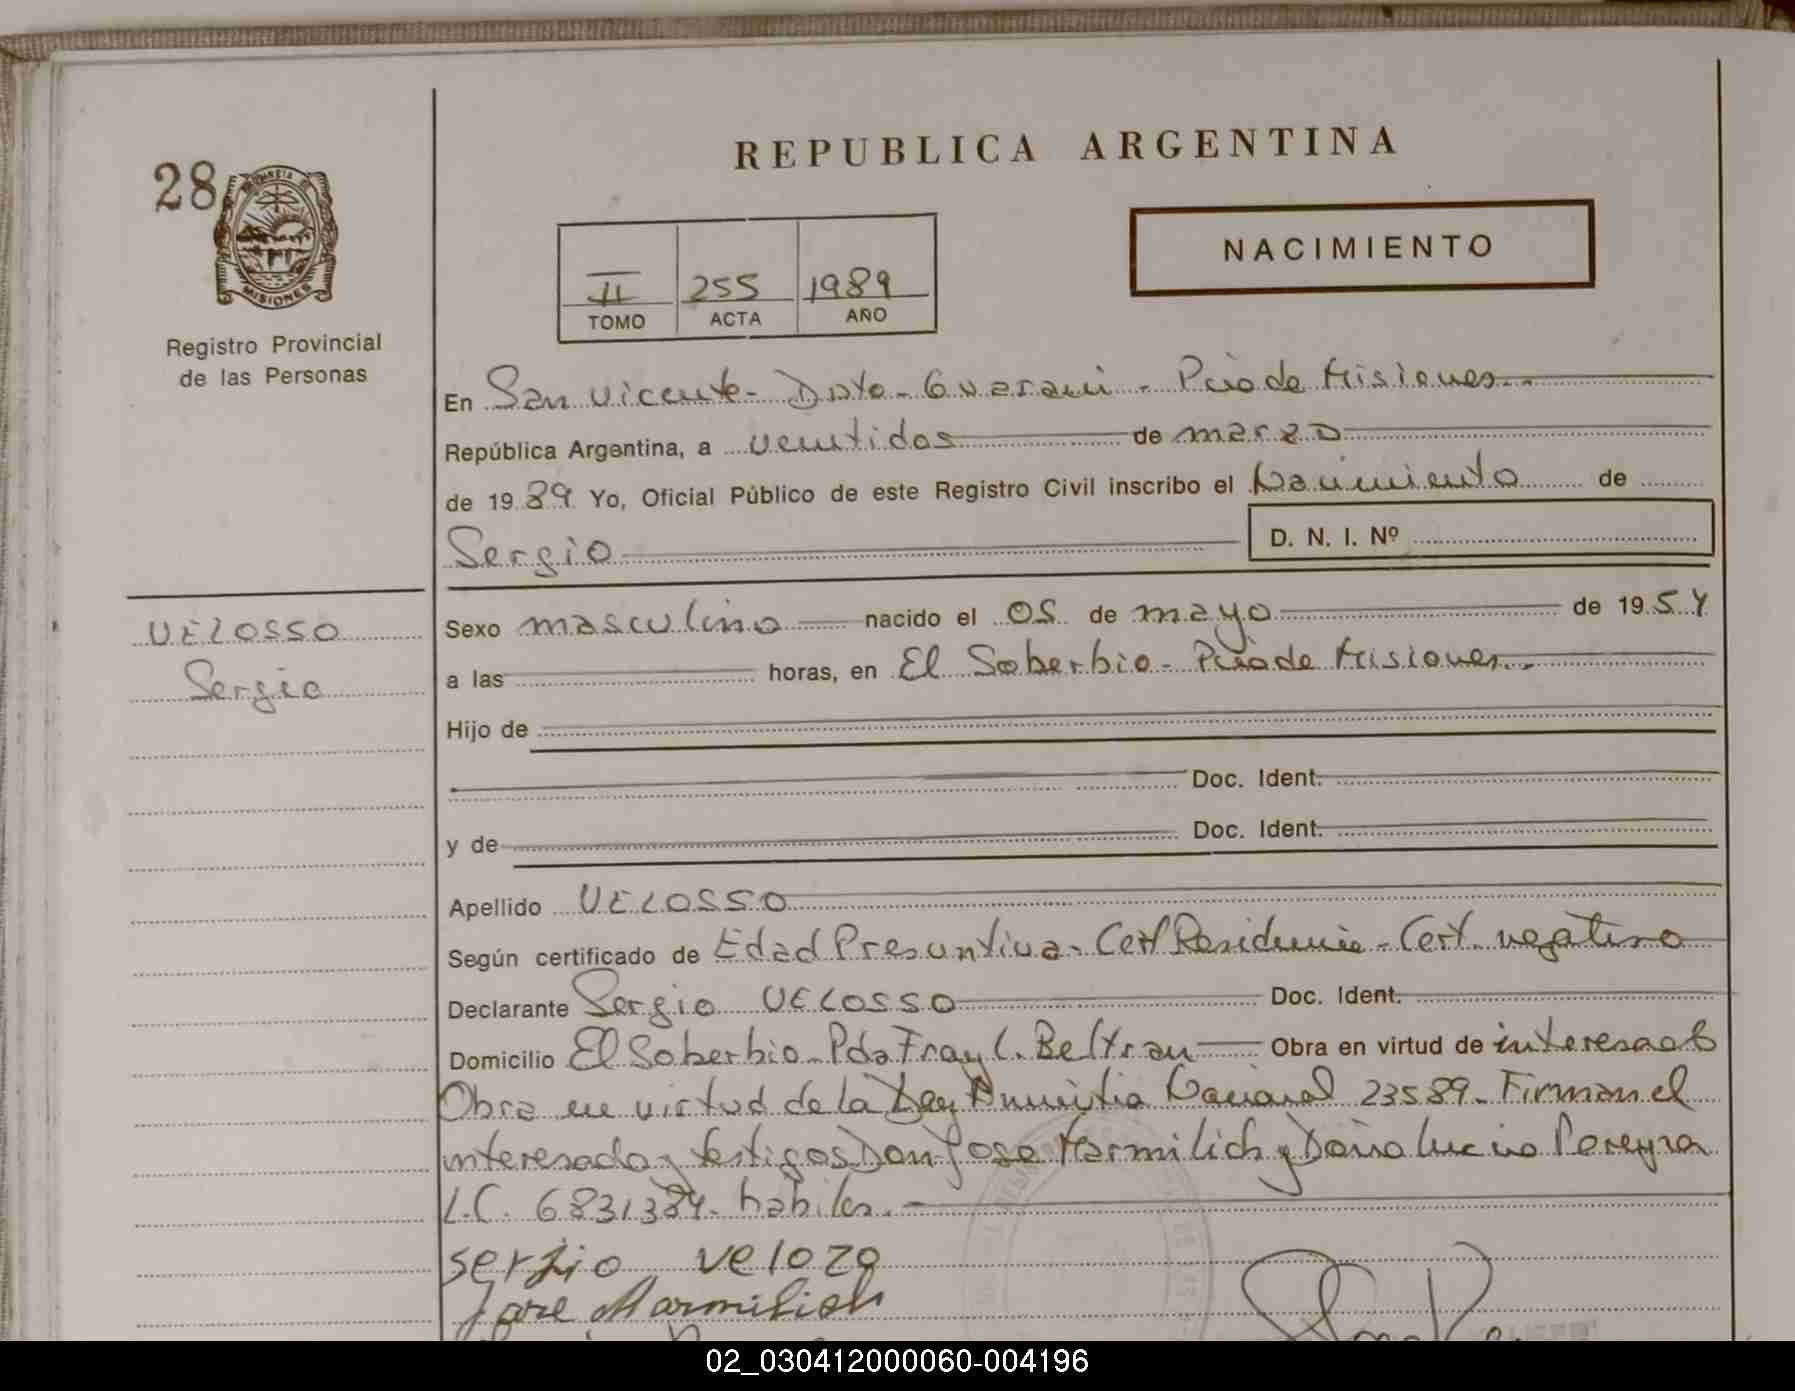 REPUBLICA ARGENTINA
28
PROVINCIA DE
MISIONES
NACIMIENTO
II 255 1989
TOMO ACTA AÑO
Registro Provincial
de las Personas
En San Vicente - Dpto - Guarani - Pcia de Misiones.-
República Argentina, a veintidos de marzo
de 1989 Yo, Oficial Público de este Registro Civil inscribo el Nacimiento de
Sergio D. N. I. Nº
VELOSSO
Sergio
Sexo masculino nacido el 05 de mayo de 1954
a las horas, en El Soberbio - Pcia de Misiones.-
Hijo de
Doc. Ident.
y de Doc. Ident.
Apellido VELOSSO
Según certificado de Edad Presuntiva - Cert Residencia - Cert. negativo
Declarante Sergio VELOSSO Doc. Ident.
Domicilio El Soberbio - Pda Fray L. Beltran Obra en virtud de interesado
Obra en virtud de la Ley Amnistia Nacional 23589 - Firman el
interesado y testigos Don Jose Marmilich y Doña Lucia Pereyra
L.C. 6831384 - habiles. -
serjio velozo
Jose Marmilich
02_030412000060-004196